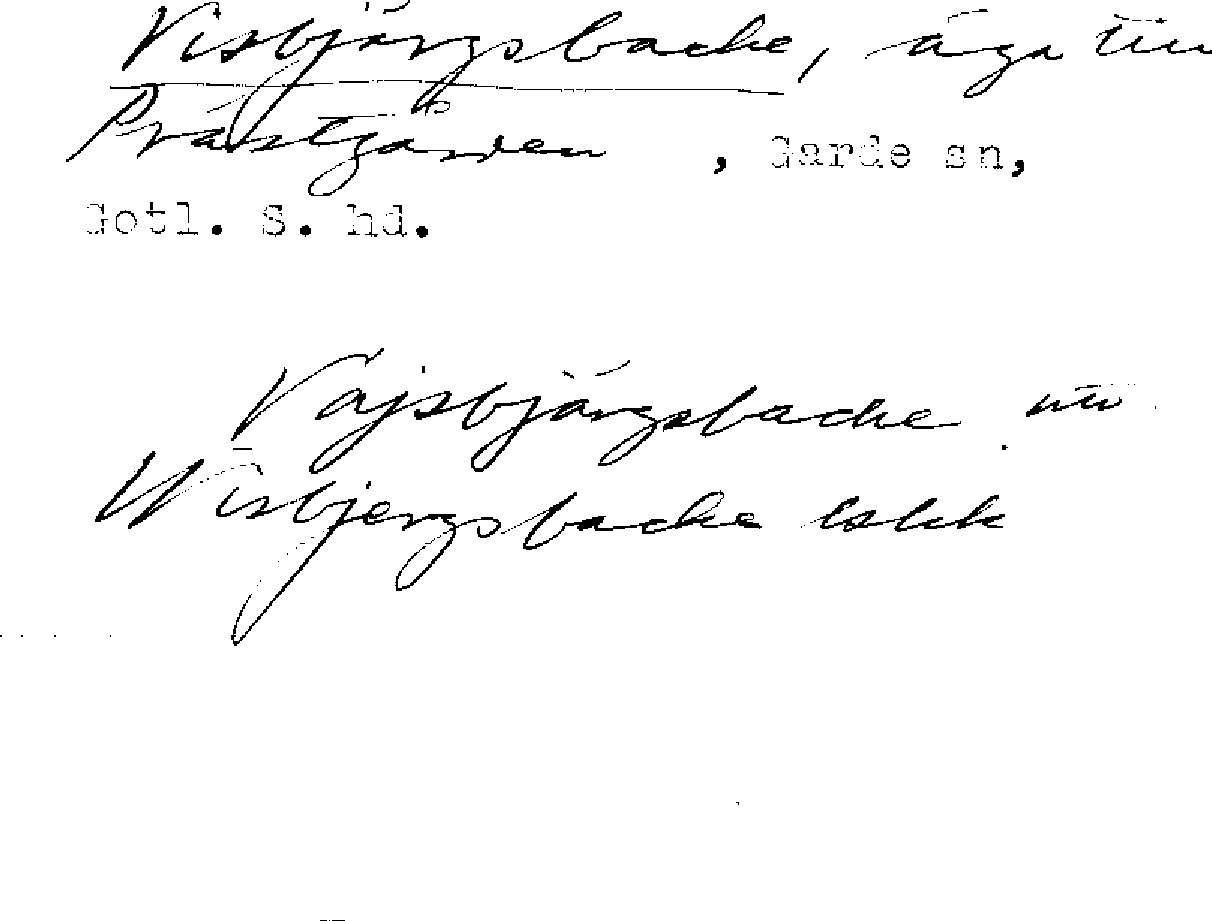 Visbjärgsbacke, äga till
Prästgården, Garde sn,
Gotl. S. hd.
Vajsbjärgsbacke
Wisbjergsbacke